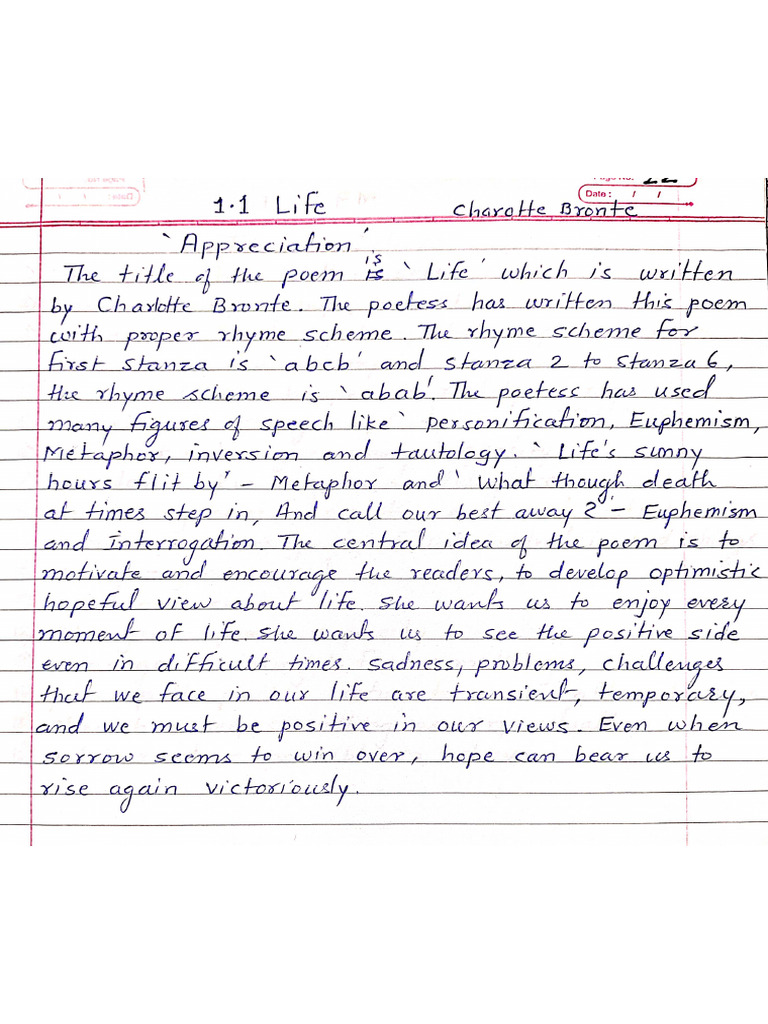 Page No. 22
Date : / /
1.1 Life Charotte Bronte
`Appreciation'
The title of the poem is `Life' which is written
by Charlotte Bronte. The poetess has written this poem
with proper rhyme scheme. The rhyme scheme for
first stanza is `abcb' and stanza 2 to stanza 6,
the rhyme scheme is `abab'. The poetess has used
many figures of speech like` personification, Euphemism,
Metaphor, inversion and tautology. `Life's sunny
hours flit by' - Metaphor and ` What though death
at times step in, And call our best away ?' - Euphemism
and Interrogation. The central idea of the poem is to
motivate and encourage the readers, to develop optimistic
hopeful view about life. She wants us to enjoy every
moment of life. She wants us to see the positive side
even in difficult times. Sadness, problems, challenges
that we face in our life are transient, temporary,
and we must be positive in our views. Even when
sorrow seems to win over, hope can bear us to
rise again victoriously.